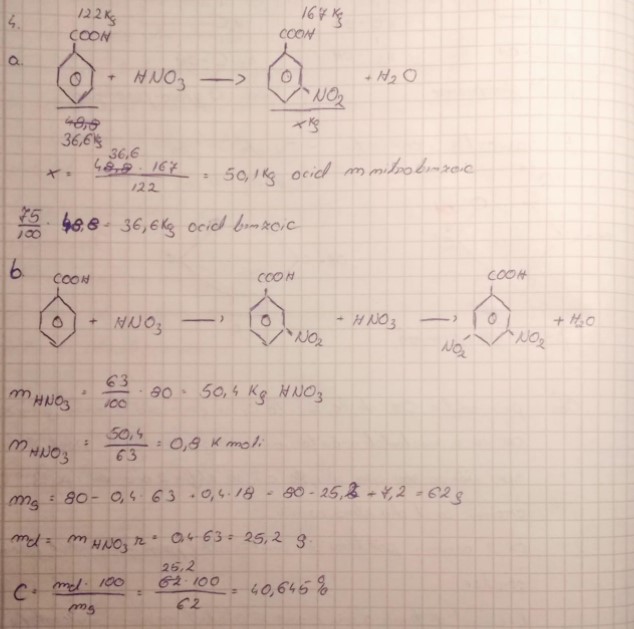 4.
122Kg 167Kg
COOH COOH
a. + HNO3 → NO2 + H2O
48,8 xKg
36,6Kg
36,6
x = 48,8 · 167 / 122 = 50,1Kg acid m nitrobenzoic
75/100 · 48,8 = 36,6Kg acid benzoic
b. COOH COOH COOH
+ HNO3 → NO2 + HNO3 → NO2 NO2 + H2O
mHNO3 = 63/100 · 80 = 50,4 Kg HNO3
mHNO3 = 50,4/63 = 0,8 Kmoli
ms = 80 - 0,4 · 63 + 0,4 · 18 = 80 - 25,2 + 7,2 = 62g
md = mHNO3 r = 0,4·63 = 25,2 g.
25,2
C = md · 100 / ms = 62 · 100 / 62 = 40,645%